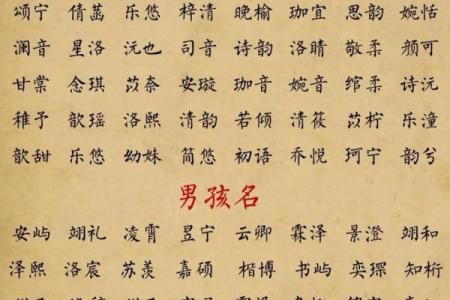 颂宁 倩菡 乐悠 梓清 晚榆 珈宜 思韵 婉恬
澜音 星洛 沅也 司音 诗韵 洛晴 敬柔 颜可
甘棠 念琪 苡奈 安璇 珈音 婉音 绾柔 诗沅
稚予 歆瑶 洛熙 清韵 若倾 清筱 苡柠 乐潼
歆甜 乐悠 幼妹 简悠 初语 乔悦 珂宁 韵兮
男孩名
安屿 翊礼 凌霄 昱宁 云卿 霖泽 景澄 翊和
泽熙 洛宸 苏羡 嘉硕 楷博 书屿 奕琛 知桁